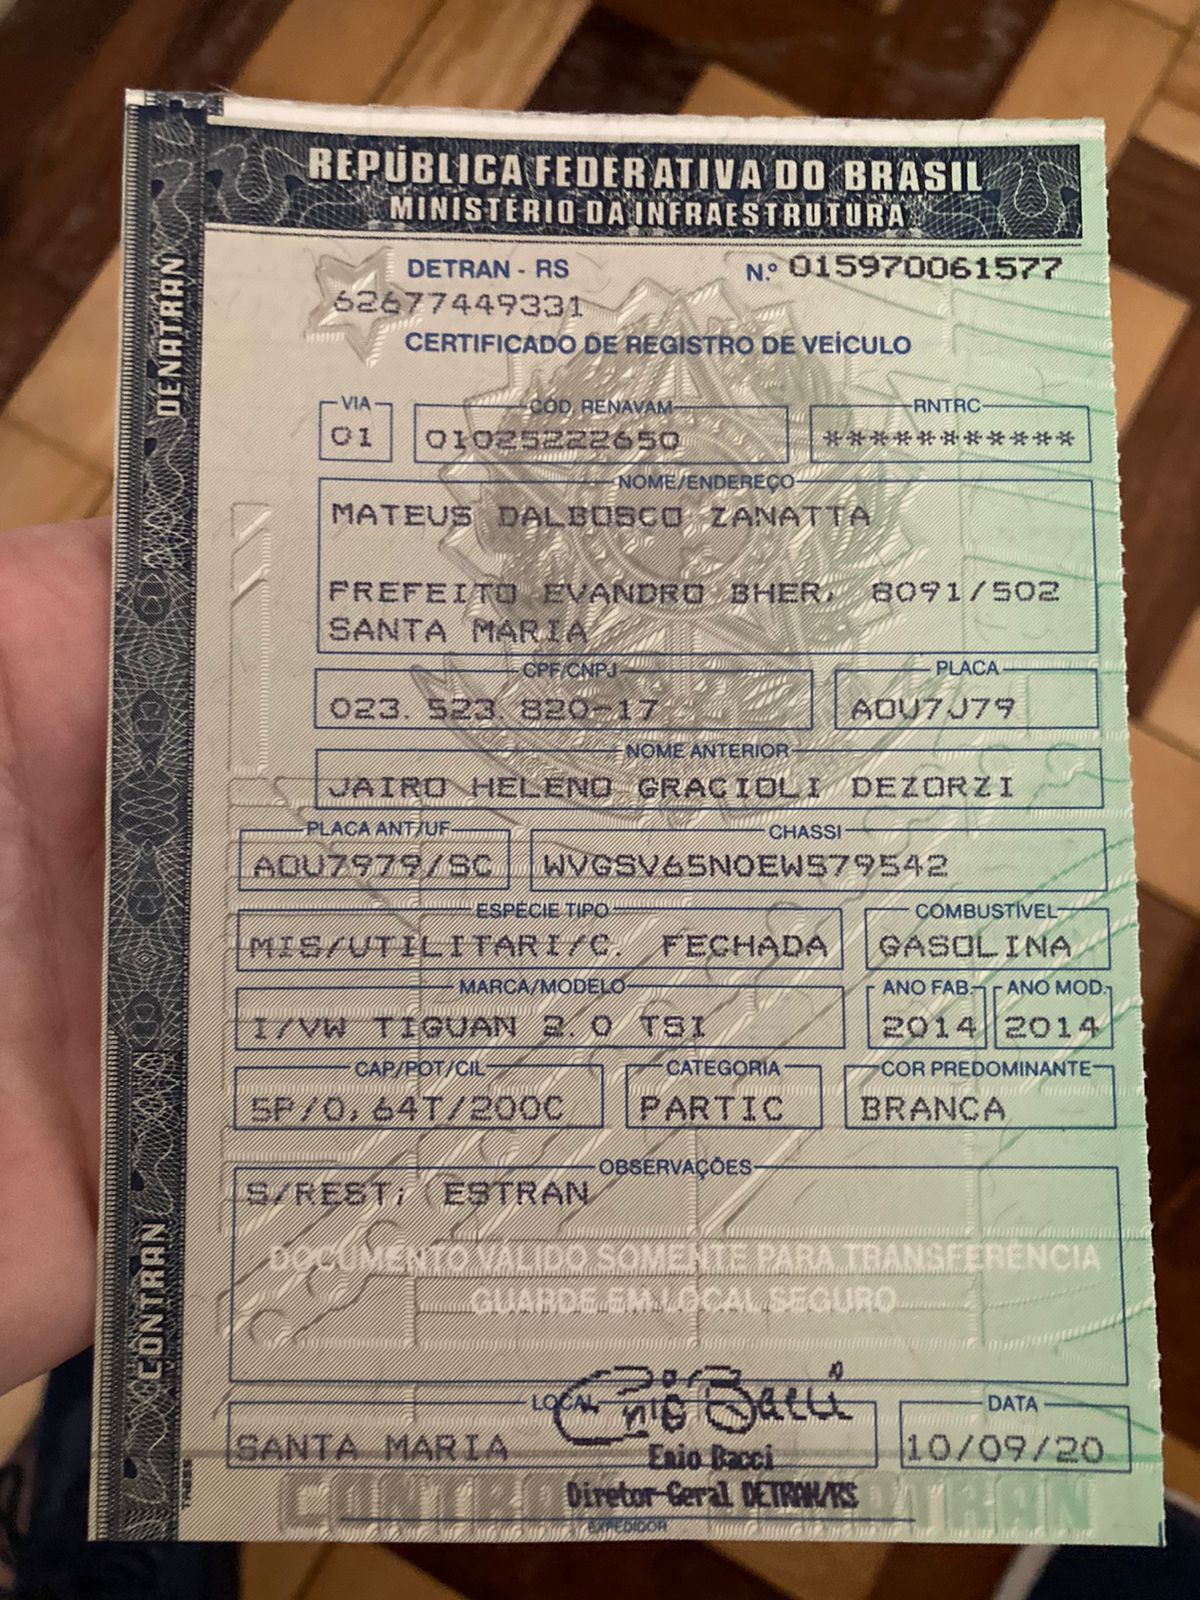 REPÚBLICA FEDERATIVA DO BRASIL
MINISTÉRIO DA INFRAESTRUTURA
DENATRAN
CONTRAN
DETRAN - RS
N.º 015970061577
62677449331
CERTIFICADO DE REGISTRO DE VEÍCULO
VIA
01
CÓD. RENAVAM
01025222650
RNTRC
***********
NOME/ENDEREÇO
MATEUS DALBOSCO ZANATTA
PREFEITO EVANDRO BHER, 8091/502
SANTA MARIA
CPF/CNPJ
023.523.820-17
PLACA
AOU7J79
NOME ANTERIOR
JAIRO HELENO GRACIOLI DEZORZI
PLACA ANT/UF
AOU7979/SC
CHASSI
WVGSV65N0EW579542
ESPÉCIE TIPO
MIS/UTILITARI/C. FECHADA
COMBUSTÍVEL
GASOLINA
MARCA/MODELO
I/VW TIGUAN 2.0 TSI
ANO FAB.
2014
ANO MOD.
2014
CAP/POT/CIL
5P/0,64T/200C
CATEGORIA
PARTIC
COR PREDOMINANTE
BRANCA
OBSERVAÇÕES
S/REST; ESTRAN
DOCUMENTO VÁLIDO SOMENTE PARA TRANSFERÊNCIA
GUARDE EM LOCAL SEGURO
LOCAL
SANTA MARIA
DATA
10/09/20
Enio Bacci
Enio Bacci
Diretor-Geral DETRAN/RS
EXPEDIDOR
CONTRAN DENATRAN